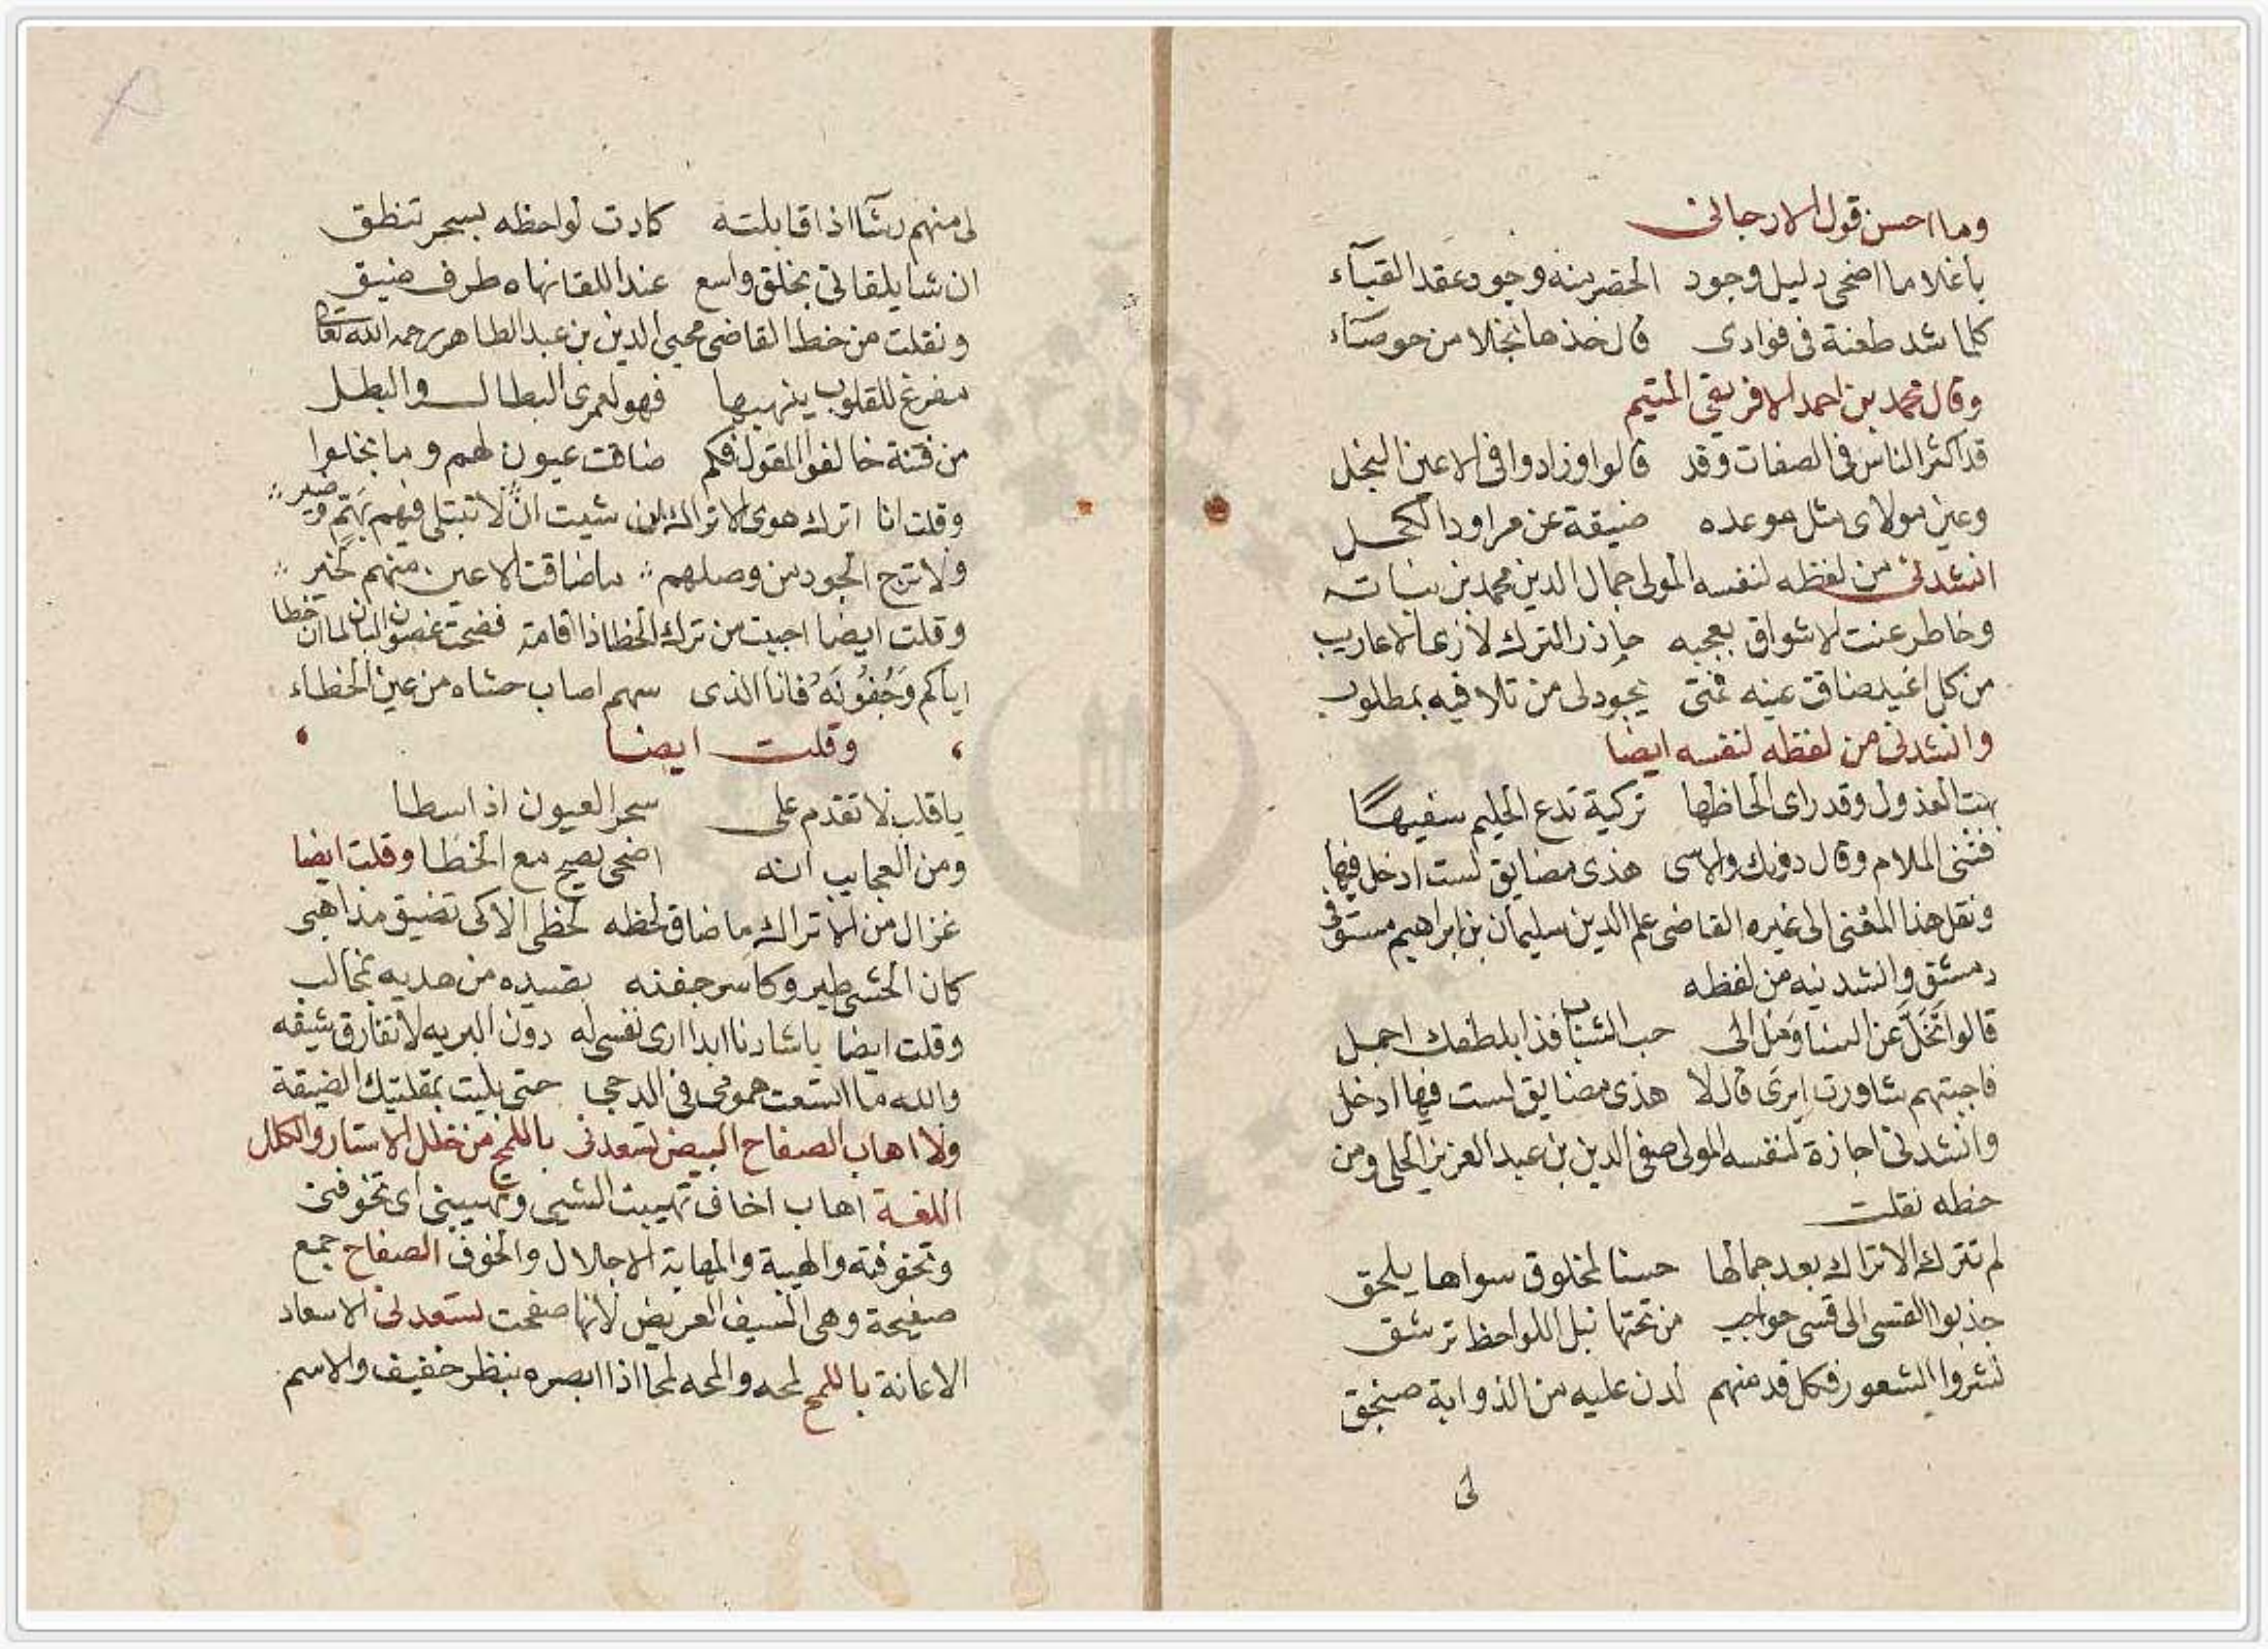 وما احسن قول الارجاني
ياغلاما اضحى دليل وجود الخصر منه وجود عقد القباء
كلما شد طعنة فى فوادى قال خذها نجلا من حوصاء
وقال محمد بن احمد الافريقي المتيم
قد اكثر الناس فى الصفات وقد قالوا وزادوا فى الاعين النجل
وعين مولاى مثل موعده ضيقة عن مراود الكحل
انشدنى من لفظه لنفسه المولى جمال الدين محمد بن نباته
وخاطر عنت الاشواق بعجبه جاذر الترك لا زعا الاعاريب
من كل اغيد ضاقت عينه فمتى يجود لى من تلافيه بمطلوب
وانشدنى من لفظه لنفسه ايضا
بهت العذول وقد راى الحاظها تركية تدع الحليم سفيها
فثنى الملام وقال دونك والاسى هذى مضايق لست ادخل فيها
ونقل هذا المعنى الى غيره القاضى علم الدين سليمان بن ابراهيم مستوفى
دمشق وانشدنيه من لفظه
قالوا تخلَّ عن النسا ومل الى حب الشباب فذا بلطفك اجمل
فاجبتهم شاورت ايرى قال لا هذى مضايق لست فيها ادخل
وانشدنى اجازة لنفسه المولى صفى الدين بن عبد العزيز الحلى ومن
خطه نقلت
لم تترك الاتراك بعد جمالها حسنا لمخلوق سواها يلحق
جذبوا القسى الى قسى حواجب من تحتها نبل اللواحظ ترشق
نشروا الشعور فكل قد منهم لدن عليه من الذوابة صنجق
لى
لى منهم رشا اذا قابلته كادت لواحظه بسحر تنطق
ان شا يلقانى بخلق واسع عند اللقا نهاه طرف ضيق
ونقلت من خط القاضى محيى الدين بن عبد الطاهر رحمه الله تعالى
مفرغ للقلوب ينهبها فهو لعمرى البطال والبطل
من فتنة خالفوا المقول فكم ضاقت عيون لهم وما بخلوا
وقلت انا اترك هوى الاتراك ان شيت ان لا تبتلى فيهم بهم وضير
ولا ترج الجود من وصلهم ما ضاقت الاعين منهم لخير
وقلت ايضا احببت من ترك الخطا ذا قامة فضحت غصون البان لما ان خطا
اياكم وجفونه فانا الذى سهم اصاب حشاه من عين الخطاء
وقلت ايضا
ياقلب لا تقدم على سحر العيون اذا سطا
ومن العجايب انه اضحى يصيح مع الخطا وقلت ايضا
غزال من الاتراك ما ضاق لحظه لحظى الا كى تضيق مذاهبى
كان الحشى طير وكاسر جفنه يصيده من هدبه بمخالب
وقلت ايضا ياشادنا ابدا ارى نفسى له دون البريه لا تفارق شيقه
والله ما اتسعت همومى فى الدجى حتى بليت بمقلتيك الضيقة
ولا اهاب الصفاح البيض تسعدنى باللمح من خلل الاستار والكلل
اللغة اهاب اخاف تهيبت الشى وتهيبنى اى تخوفنى
وتخوفته والهيبة والمهابة الاجلال والخوف الصفاح جمع
صفيحة وهى السيف العريض لانها صفحت تسعدنى الاسعاد
الاعانة باللمح لمحه والمحه لمحا اذا ابصره بنظر خفيف والاسم